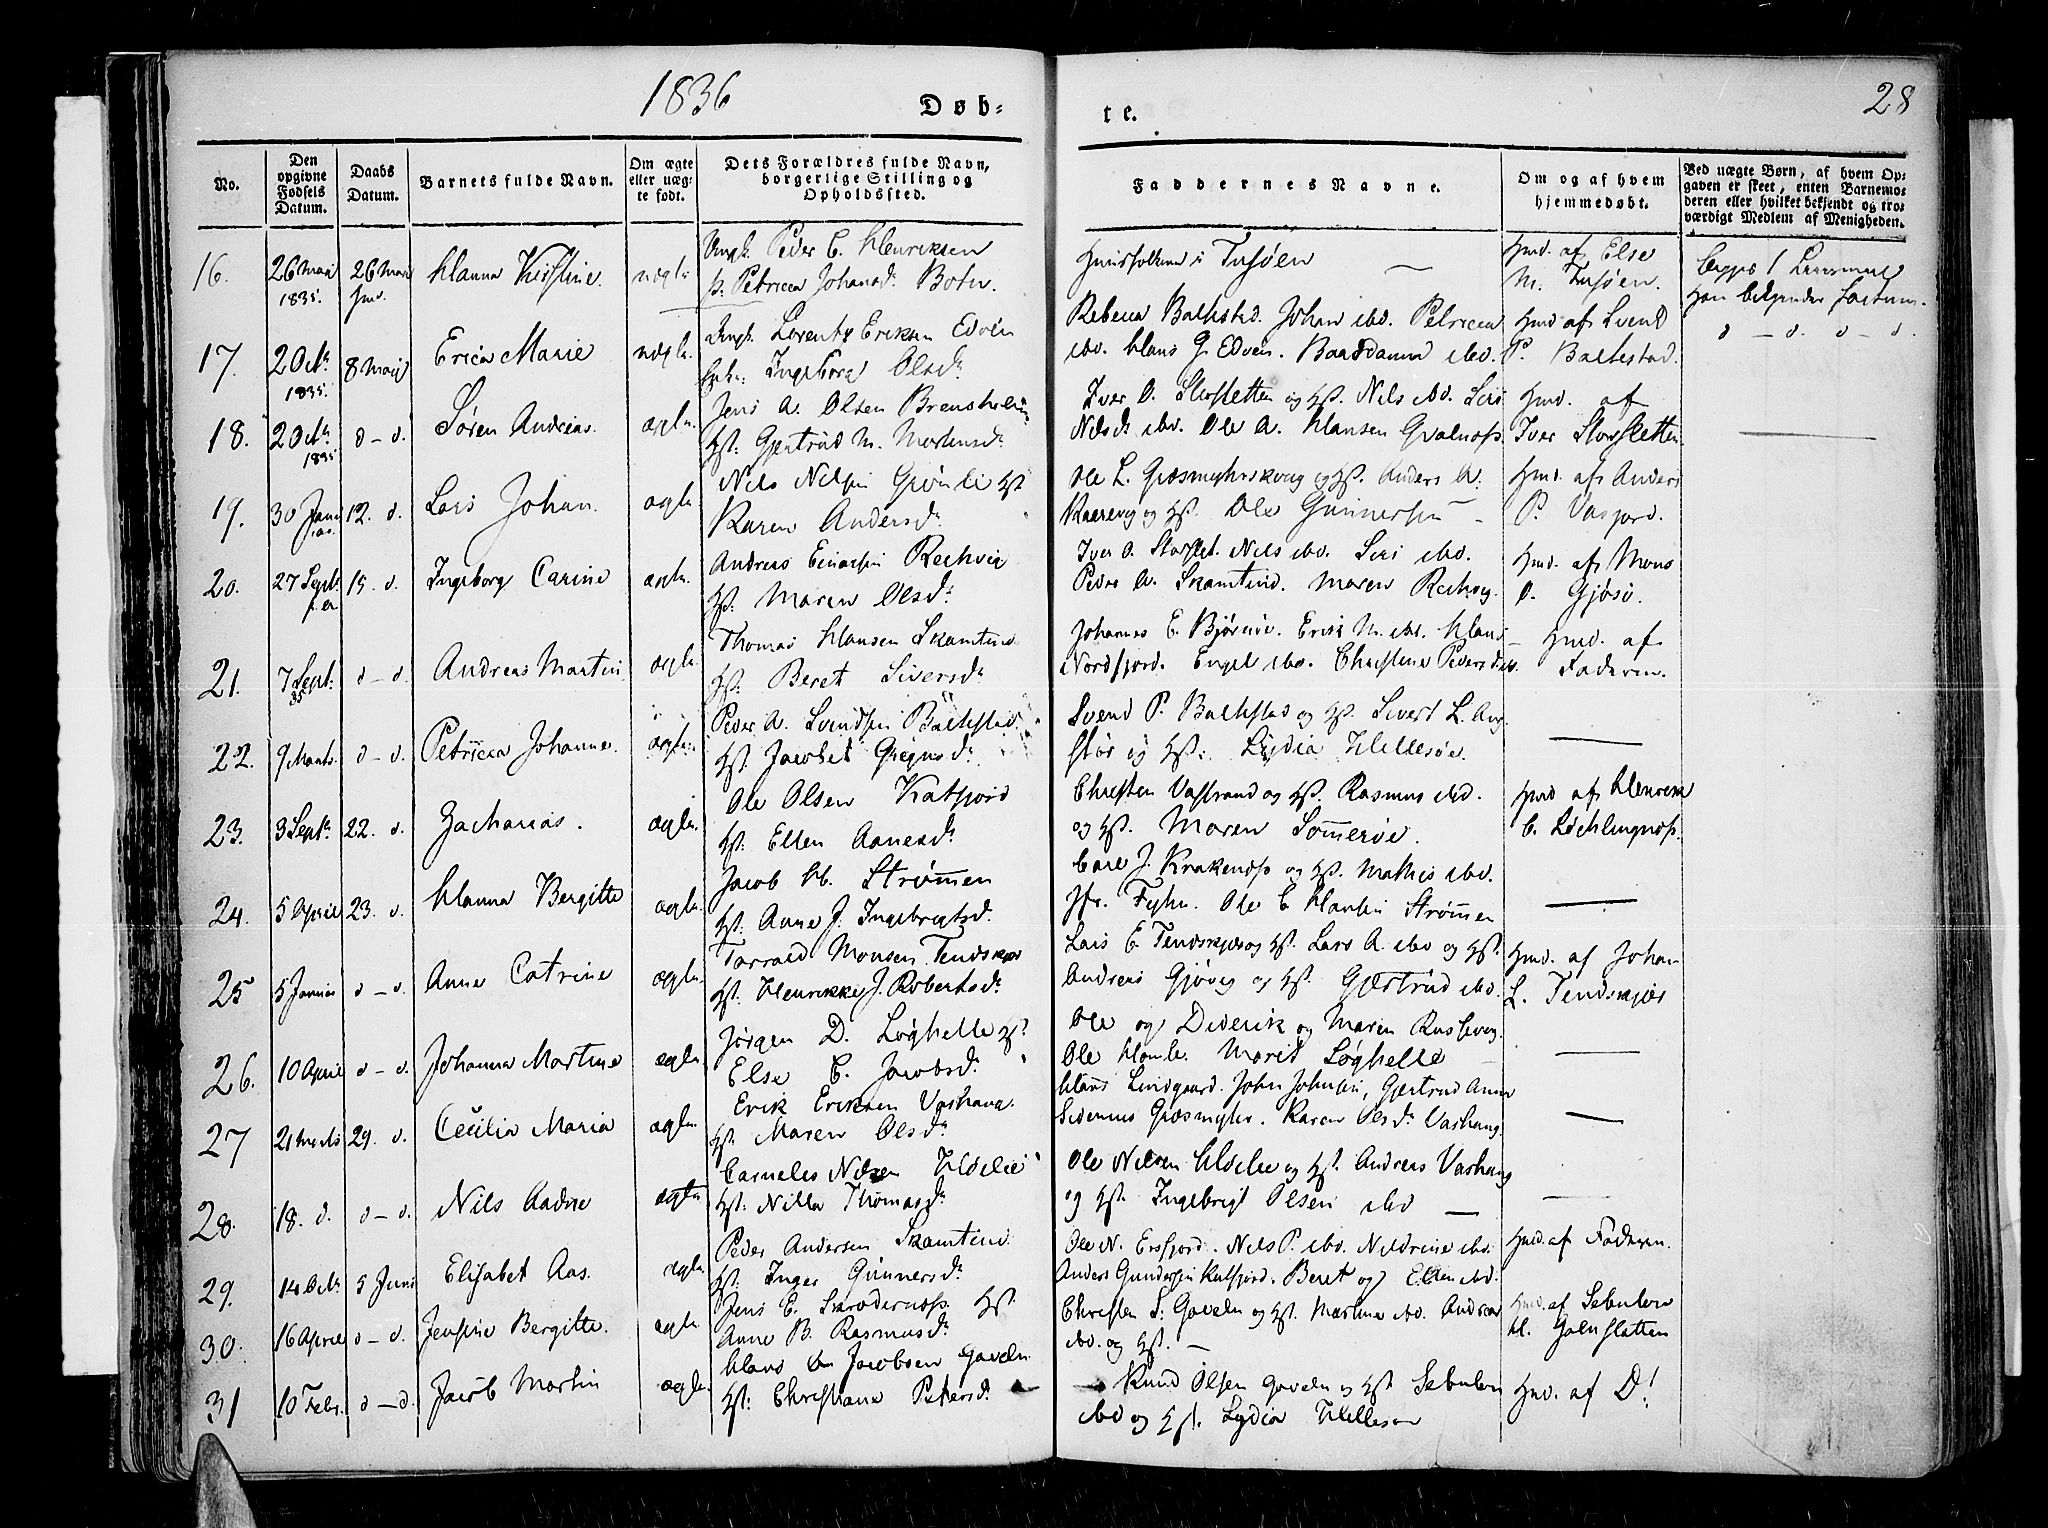 1836
Døb-
te.
28
No.
Den opgivne Fødsels Datum.
Daabs Datum.
Barnets fulde Navn.
Om ægte eller uægte født.
Dets Forældres fulde Navn, borgerlige Stilling og Opholdssted.
Faddernes Navne.
Om og af hvem hjemmedøbt.
Ved uægte Børn, af hvem Opgaven er skeet, enten Barnemoderen eller hvilket bekjendt og troværdigt Medlem af Menigheden.
16. 26 Maii 1835. 26 Maii Hanna Kirstine uægte
Ungk. Peder C. Henriksen
P. Petricca Johansdr Botn.
i Tussøen
Hmd. af Else
M. Tussøen.
17. 2 Octr 1835. 8 Maii Erica Marie uægte
Ungk. Lorentz Eriksen Edøen
Ingeborg Olsdr
Rebecca Balthestad. Johan ibd. Petricca
ibd. Hans G. Edøen. ibd.
Hmd. af Svend
P. Balthestad.
d - d. d - d.
18. 2 Octr 1835 d - d. Søren Andreas. ægte
Jens A. Olsen Brensholmen
Hst. Gjertrud M. Mortensdr
Iver O. Storsletten og Hst. Nils ibd. Siri
Nilsdr ibd. Ole A. Hansen
Hmd. af
Iver Storsletten
19. 30 Janu 12. d. Lars Johan. ægte
Nils Nilsen Grønli Hst
Karen Andersdr
Ole L. Græsmyrskoug og Hst. Anders A.
og Hst. Ole Gunnersen
Hmd. af Anders
P. Vasjord.
20. 27 Septr 15. d. Ingeborg Carine ægte
Andreas Einarsen Rechvig
Hst. Maren Olsdr
Iver O. Storslet. Nils ibd. Siri ibd.
Peder A. Skamtind. Maren Rechvig.
Hmd. af Mons
O. Gjøsø.
21. 7 Sept. 35 d - d. Andreas Martin. ægte
Thomas Hansen Skamtind
Hst. Beret Siversdr
Johannes E. Bjørnøe. Erik M. ibd. Hans
Nordfjord. Engel ibd. Christine Pedersdr ibd.
Hmd. af
Faderen.
22. 9 Marts d - d. Petricca Johanne. ægte
Peder A. Svendsen Balthestad
Hst. Jacobet Gregusdr
Svend P. Balthestad og Hst. Sivert L. Ang-
stør og Hst. Lydia Hillesøe.
23. 3 Septr 22. d. Zacharias. ægte
Ole Olsen Katfjord
Hst. Ellen Aanesdr
Christen Vastrand og Hst. Rasmus ibd.
og Hst. Maren Sommerøe.
Hmd af Henrik
C.
24. 5 April 23. d. Hanna Bergitte ægte
Jacob H. Strømmen
Hst. Anne J. Ingebrigtsdr
Carl J. Krakenes og Hst. Mathis ibd.
Jfr. Fyhn. Ole C. Hansen Strømmen
25 5 Januar d - d. Anne Catrine ægte
Torrald Monsen Tendskjær
Hst. Henrikke J. Robertsdr
Lars E. Tendskjær og Hst. Lars A. ibd og Hst.
Andreas Gjøvig og Hst. Gjertrud ibd.
Hmd. af Johan
L. Tendskjær
26. 10 April d - d. Johanna Martine ægte
Jørgen D. Løghelle Hst.
Else E. Jacobsdr
Ole og Diderik og Maren Russevog
Ole Marit Løghelle
27 21 Marts 29. d. Cecilia Maria ægte
Erik Eriksen Vashaug.
Hst. Maren Olsdr
Hans Lindgaard. John Johnsen, Gjertrud Anna
Sidenius Græsmyhr. Karen Olsdr Vashaug.
28. 18. d. d - d. Nils Aadne ægte
Carneles Nilsen
Hst. Nilla Thomasdr
Ole Nilsen og Hst. Andreas Vashaug
og Hst. Ingebrigt Olsen ibd
29. 14 Octr 5 Juni Elisabet Aas. ægte
Peder Andersen Skamtind
Hst. Inger Gunnersdr
Ole N. Ersfjord. Nils P. ibd. Nildrine ibd.
Anders Gundersen Katfjord. Beret og Ellen ibd.
Hmd. af Faderen.
30. 16 April d - d. Jensine Bergitte. ægte
Jens E. Hst.
Anne B. Rasmusdr
Christen S. Gaveln og Hst. Martine ibd. Andreas
ibd. og Hst.
Hmd. af Sebulon
H.
31 10 Febr. d - d. Jacob Martin ægte
Hans Jacobsen Gaveln
Hst. Christiane Petersdr
Knud Olsen Gaveln og Hst. Sebulon
ibd og Hst. Lydia Hillesøn
Hmd. af D!